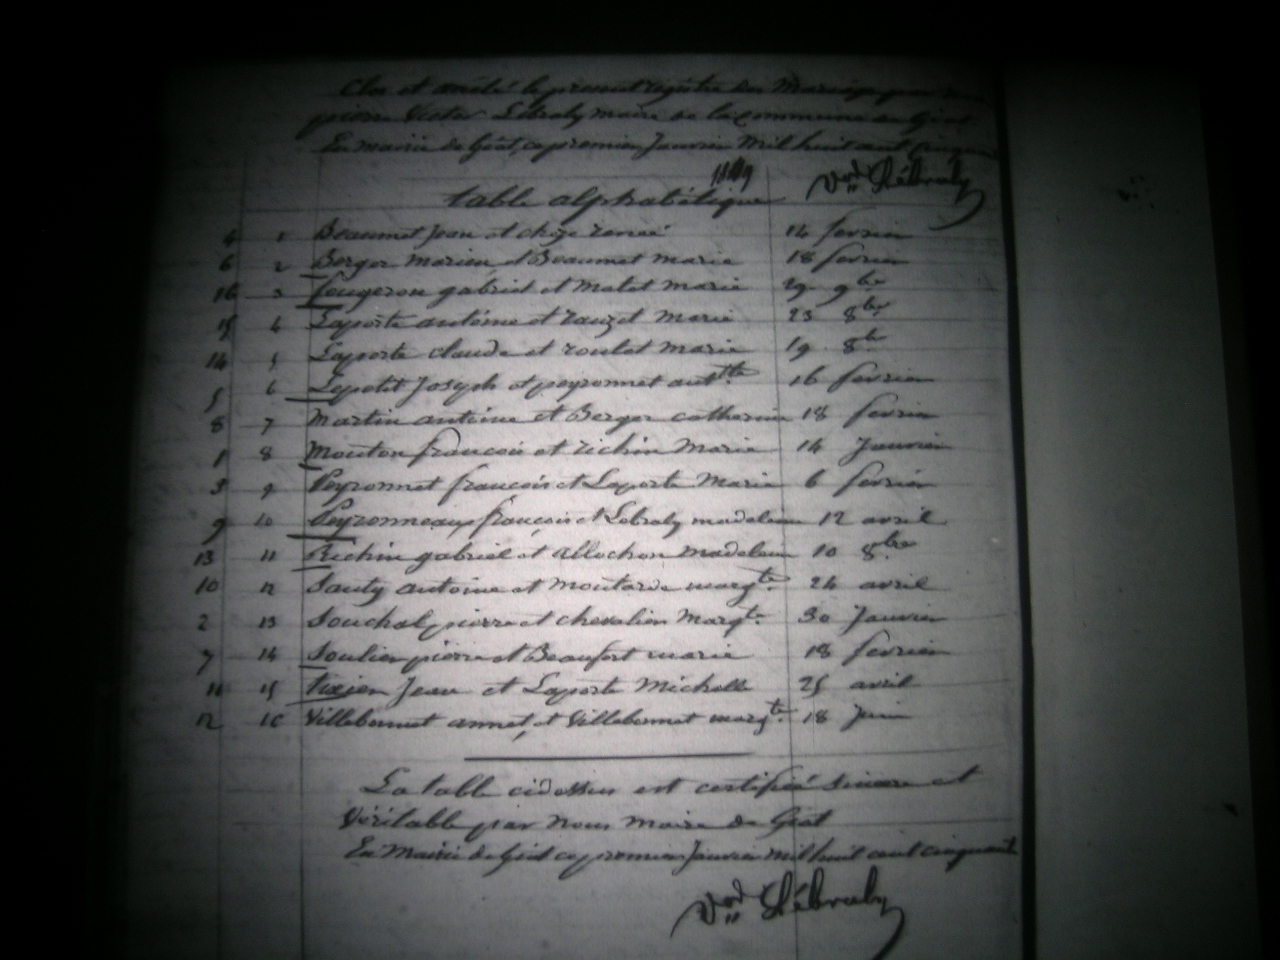 Clos et arrêté le present registre des Mariages par nous
pierre Victor Lébraly maire de la Commune de Giat
En mairie de Giat, ce premier Janvier Mil huit cent cinquante
1849 Vor Lébraly
table alphabétique
4 1 Beaumet Jean et chize renée 14 fevrier
6 2 Berger marien et Beaumet marie 18 fevrier
16 3 fougeron gabriel et Malet marie 29 9bre
15 4 Laporte antoine et rauzet Marie 23 8bre
14 5 Laporte claude et roulet marie 19 8bre
5 6 Lepetit Joseph et peyronnet antte 16 fevrier
8 7 Martin antoine et Berger catherine 18 fevrier
1 8 Mouton francois et richin Marie 14 Janvier
3 9 Peyronnet francois et Laporte Marie 6 fevrier
9 10 Peyronneaux françois et Lebraly madeleine 12 avril
13 11 Richin gabriel et allochon Madeleine 10 8bre
10 12 Sauty antoine et Moutarde margte 24 avril
2 13 Souchal pierre et chevalier Margte 30 Janvier
7 14 Soulier pierre et Beaufort marie 18 fevrier
11 15 tixier Jean et Laporte Michelle 25 avril
12 16 Villebonnet annet, et Villebonnet margte 18 Juin
La table cidessus est certifiée sincere et
Véritable par nous maire de Giat
En Mairie de Giat ce premier Janvier Mil huit cent cinquante
Vor Lébraly